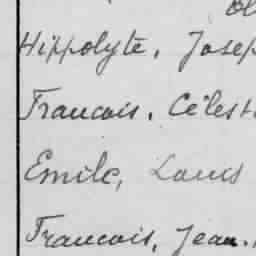 Hippolyte, Josep
Francois, Célest
Emile, Louis
Francois, Jean.